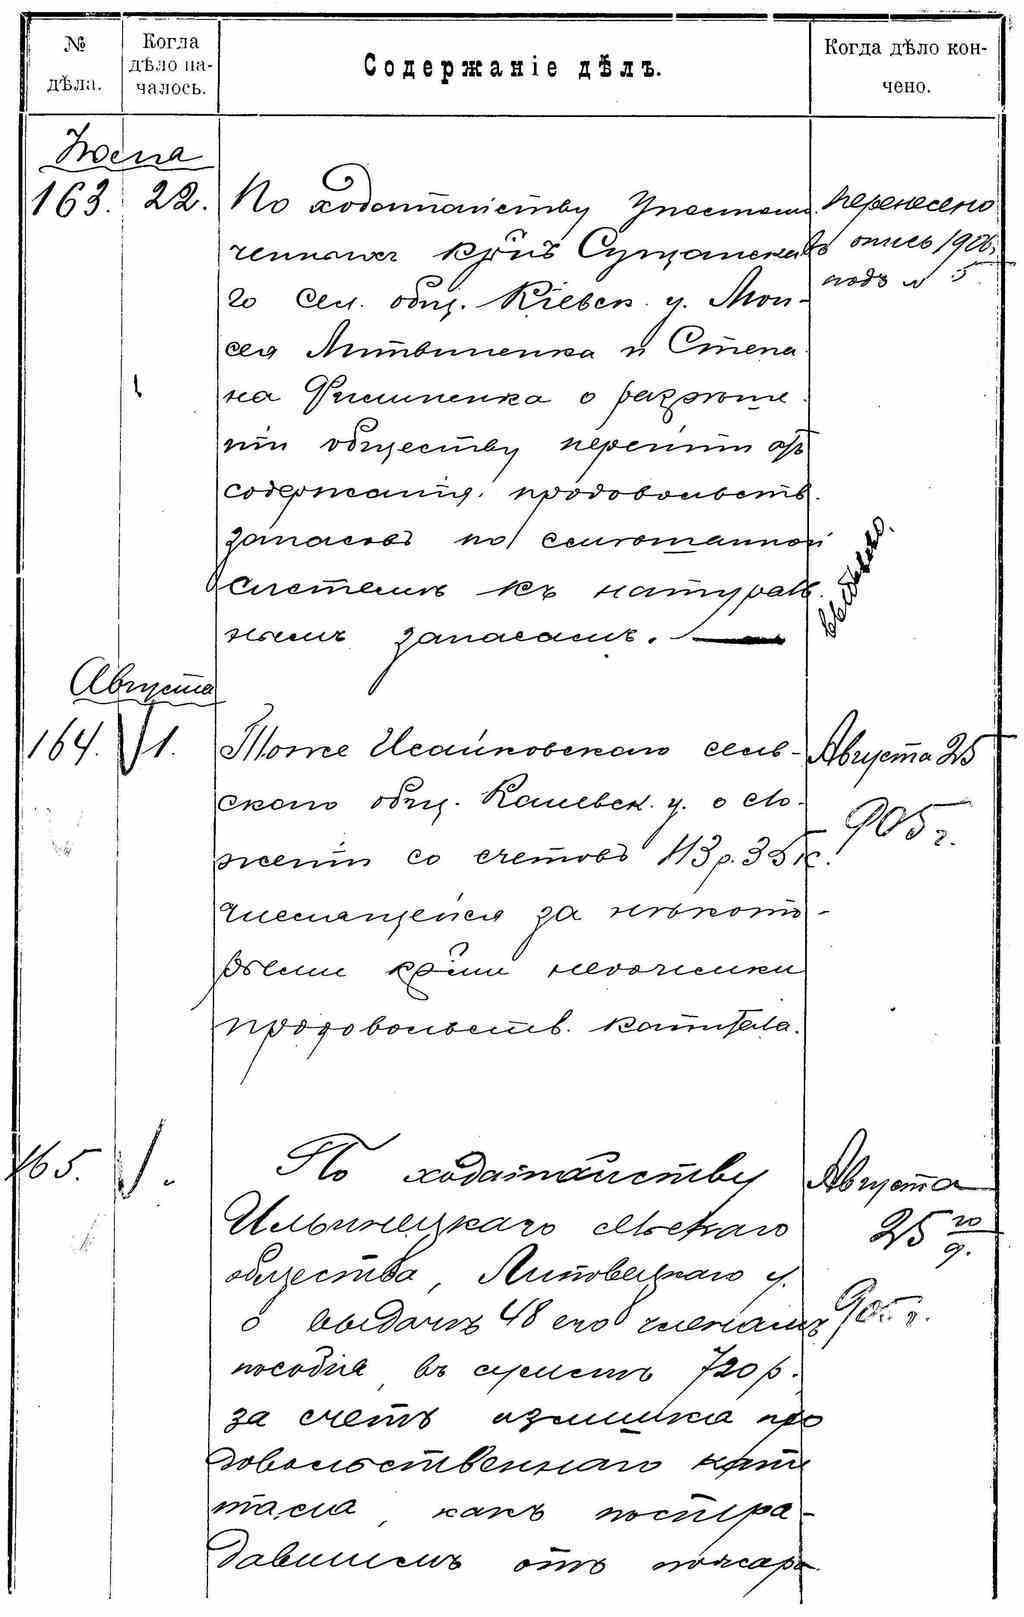 № дѣла.
Когда дѣло на-
чалось.
Содержаніе дѣлъ.
Когда дѣло кон-
чено.
163. 22.
По ходатайству Уполномо
ченныхъ кр̃нъ Сущанска
го сел. общ. Кіевск. у. Мои-
сея Литвиненка и Степа
на Филипенка о разрѣше
ніи обществу перейти отъ
содержанія продовольств.
запасовъ по смѣшанной
системѣ къ натураль
нымъ запасамъ.
перенесено
въ опись 1906 г.
подъ № 5
выбыло.
Августа
164. 1.
Тоже Исайковскаго сель-
скаго общ. Каневск. у. о сло-
женіи со счетовъ 113 р. 35 к.
числящейся за нѣкото-
рыми кр̃ми недоимки
продовольств. капитала.
Августа 25
905 г.
165.
По ходатайству
Ильинецкаго сельскаго
общества, Липовецкаго у.
о выдачѣ 48 его членамъ
пособія въ суммѣ 720 р.
за счетъ излишка про
довольственнаго капи
тала, какъ постра-
давшимъ отъ пожара
Августа
25 го
д.
905 г.